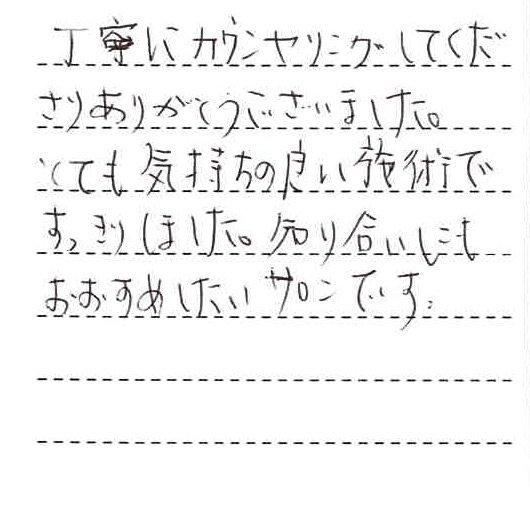 丁寧にカウンセリングしてくだ
さりありがとうございました。
とても気持ちの良い施術で
すっきりしました。知り合いにも
おすすめしたいサロンです。